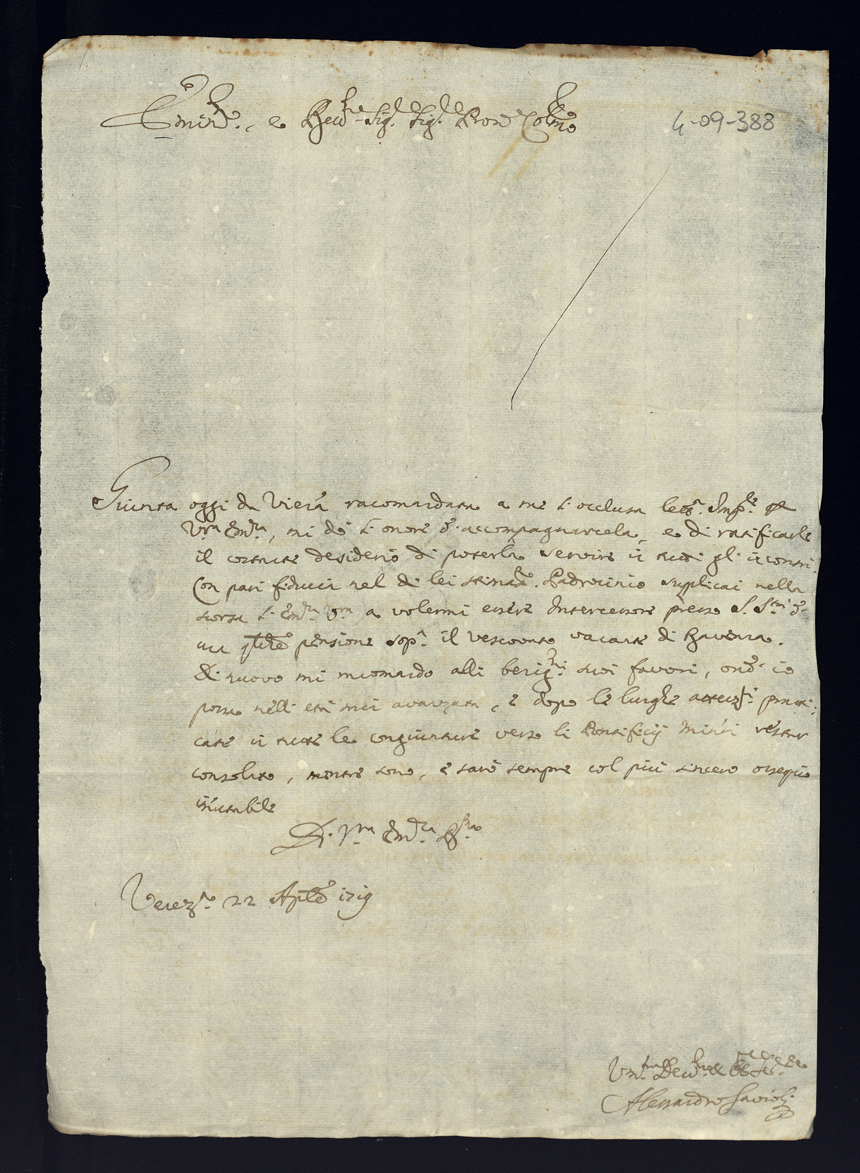 Emin:mo e Rev:mo Sig:r Sig:r Pron Col:mo
4-09-388
Giunta oggi da Viena racomandata a me l'occlusa let:a p
V:ra Em:za, mi do l'onore d'accompagnarcela, e di ratificarle
il costante desiderio di poterla servire in tutti gli incontri.
Con pari fiducia nel di lei stimat:mo Padrocinio suplicai nella
scorsa l'Em:za V:ra a volermi essere Intercessore presso S. S:tà d'
una qualche pensione sop:a il vescovato vacante di Ravenna.
Di nuovo mi racomando alli benig:mi suoi favori, ond' io
possa nell' età mia avanzata, e dopo le lunghe prati:
cate in tutte le congiunture verso li Pontificij Min:ri restar
consolato, mentre sono, e sarò sempre col più sincero ossequio
inmutabile
Di V:ra Em:za
Venez:a 22 Aple 1719
Um:mo Dev:mo Obl:mo Ser:re
Alessandro Savioli